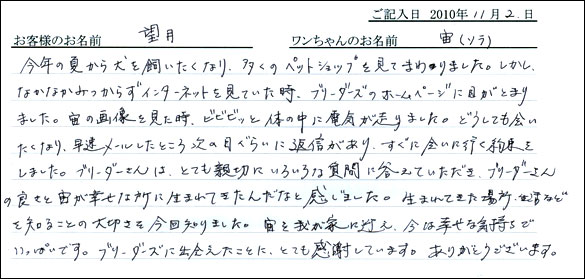 ご記入日 2010年11月2日
お客様のお名前 望月 ワンちゃんのお名前 宙(ソラ)
今年の夏から犬を飼いたくなり、多くのペットショップを見てまわりました。しかし、
なかなかみつからずインターネットを見ていた時、ブリーダーズのホームページに目がとまり
ました。宙の画像を見た時、ビビビッと体の中に電気が走りました。どうしても会い
たくなり、早速メールしたところ次の日ぐらいに返信があり、すぐに会いに行く約束を
しました。ブリーダーさんは、とても親切にいろいろな質問に答えていただき、ブリーダーさん
の良さと宙が幸せな所に生まれてきたんだなと感じました。生まれてきた場所、環境など
を知ることの大切さを今回知りました。宙を我が家に迎え、今は幸せな気持ちで
いっぱいです。ブリーダーズに出会えたことに、とても感謝しています。ありがとうございます。